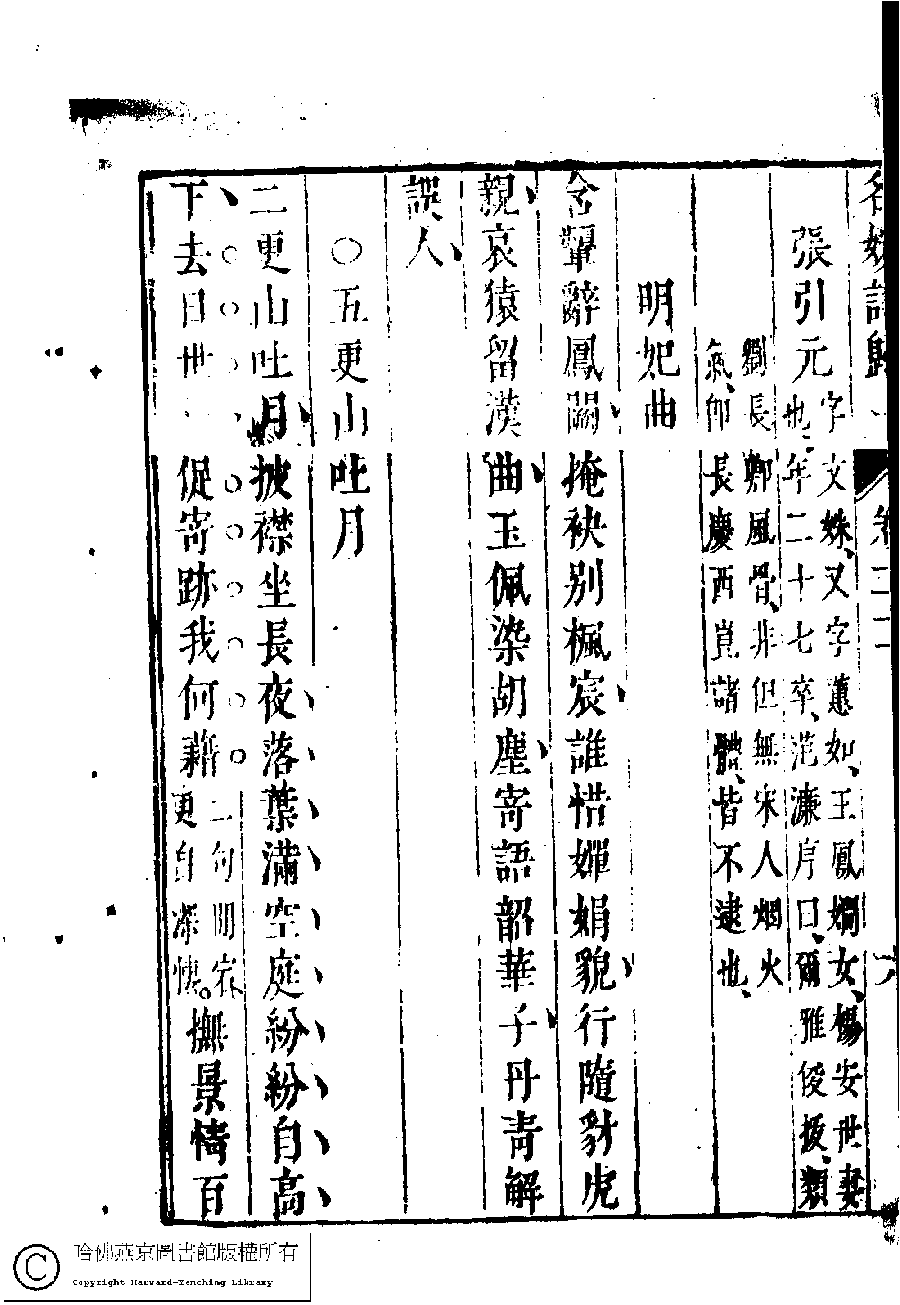 名媛詩歸 卷二 六
張引元
字文姝、又字蕙如、王鳳嫻女、楊安世妻
也、年二十七卒、范濂序曰、爾雅俊拔、類
劉長卿風骨、非但無宋人烟火
氣、卽長慶西崑諸體、皆不逮也、
明妃曲
含顰辭鳳闕掩袂别楓宸誰惜嬋娟貌行隨豺虎
親哀猿留漢曲玉佩染胡塵寄語韶華子丹靑解
誤人
○五更山吐月
二更山吐月披襟坐長夜落葉滿空庭紛紛自高
下去日世促寄跡我何藉
二句
更自深懷。
撫景情百
哈佛燕京圖書館版權所有
Copyright Harvard-Yenching Library